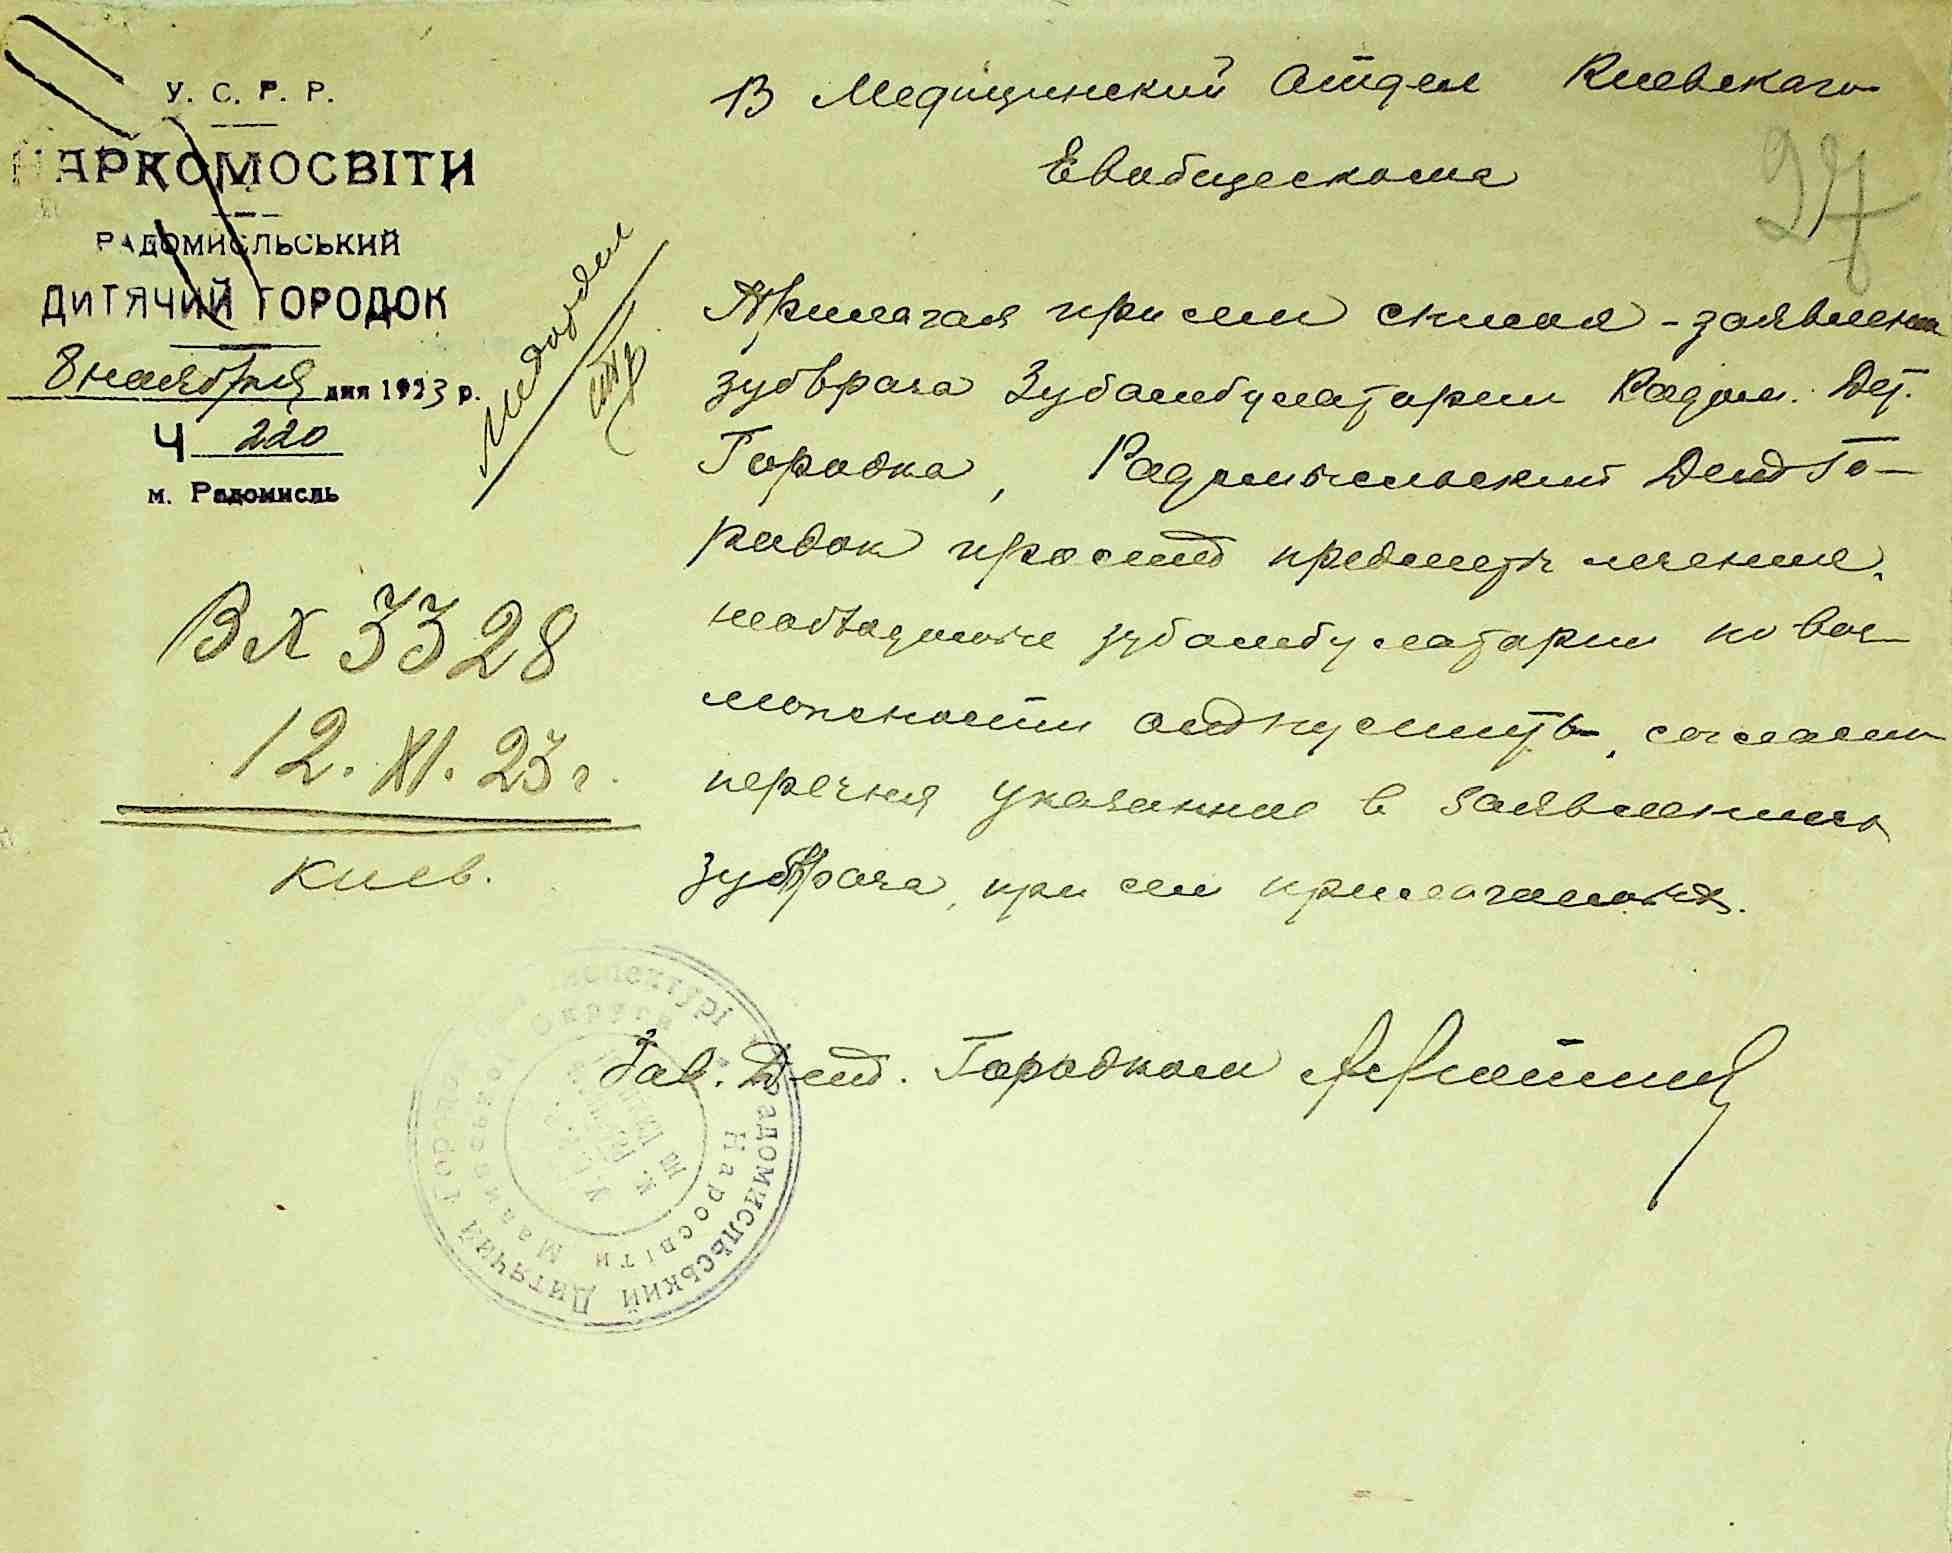 У. С. Р. Р.
НАРКОМОСВІТИ
РАДОМИСЛЬСЬКИЙ
ДИТЯЧИЙ ГОРОДОК
8 ноября дня 1923 р.
Ч 220
м. Радомисль
Медотдел
Вх 3328
12. XI. 23 г.
Киев.
В Медицинский Отдел Киевскаго
Евобщескома
27
Прилагая при сем список - заявление
зубврача Зубамбулатории Радом. Дет.
Городка, Радомысльский Дет Го-
родок просит предметы лечения,
необходимые зубамбулатории по воз-
можности отпустить, согласно
перечня указанные в заявлении
зубврача, при сем прилагаемых.
Зав. Дет. Городком
Радомисльський Дитячий Городок
Наросвіти